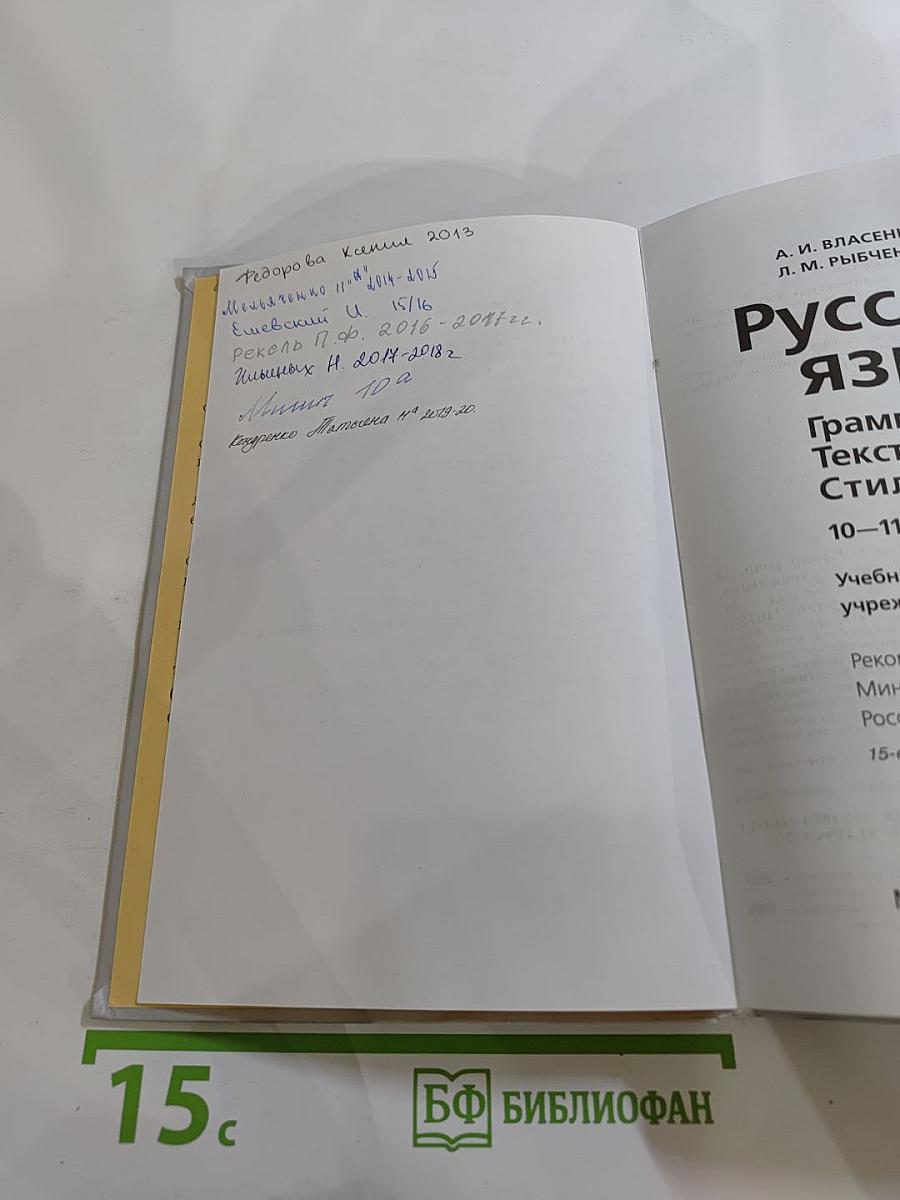 Федорова Ксения 2013
Мельяченко 11"А" 2014-2015
Ешевский И. 15/16
Рекель П.Ф. 2016-2017гг.
Ильиных Н. 2017-2018г
10 а
Кондренко Татьяна 11а 2019-20.
А. И. ВЛАСЕН
Л. М. РЫБЧЕН
Русс
язы
Грам
Текст
Стил
10—11
Учебн
учреж
Реко
Мин
Росс
15-е
15 с
БФ БИБЛИОФАН